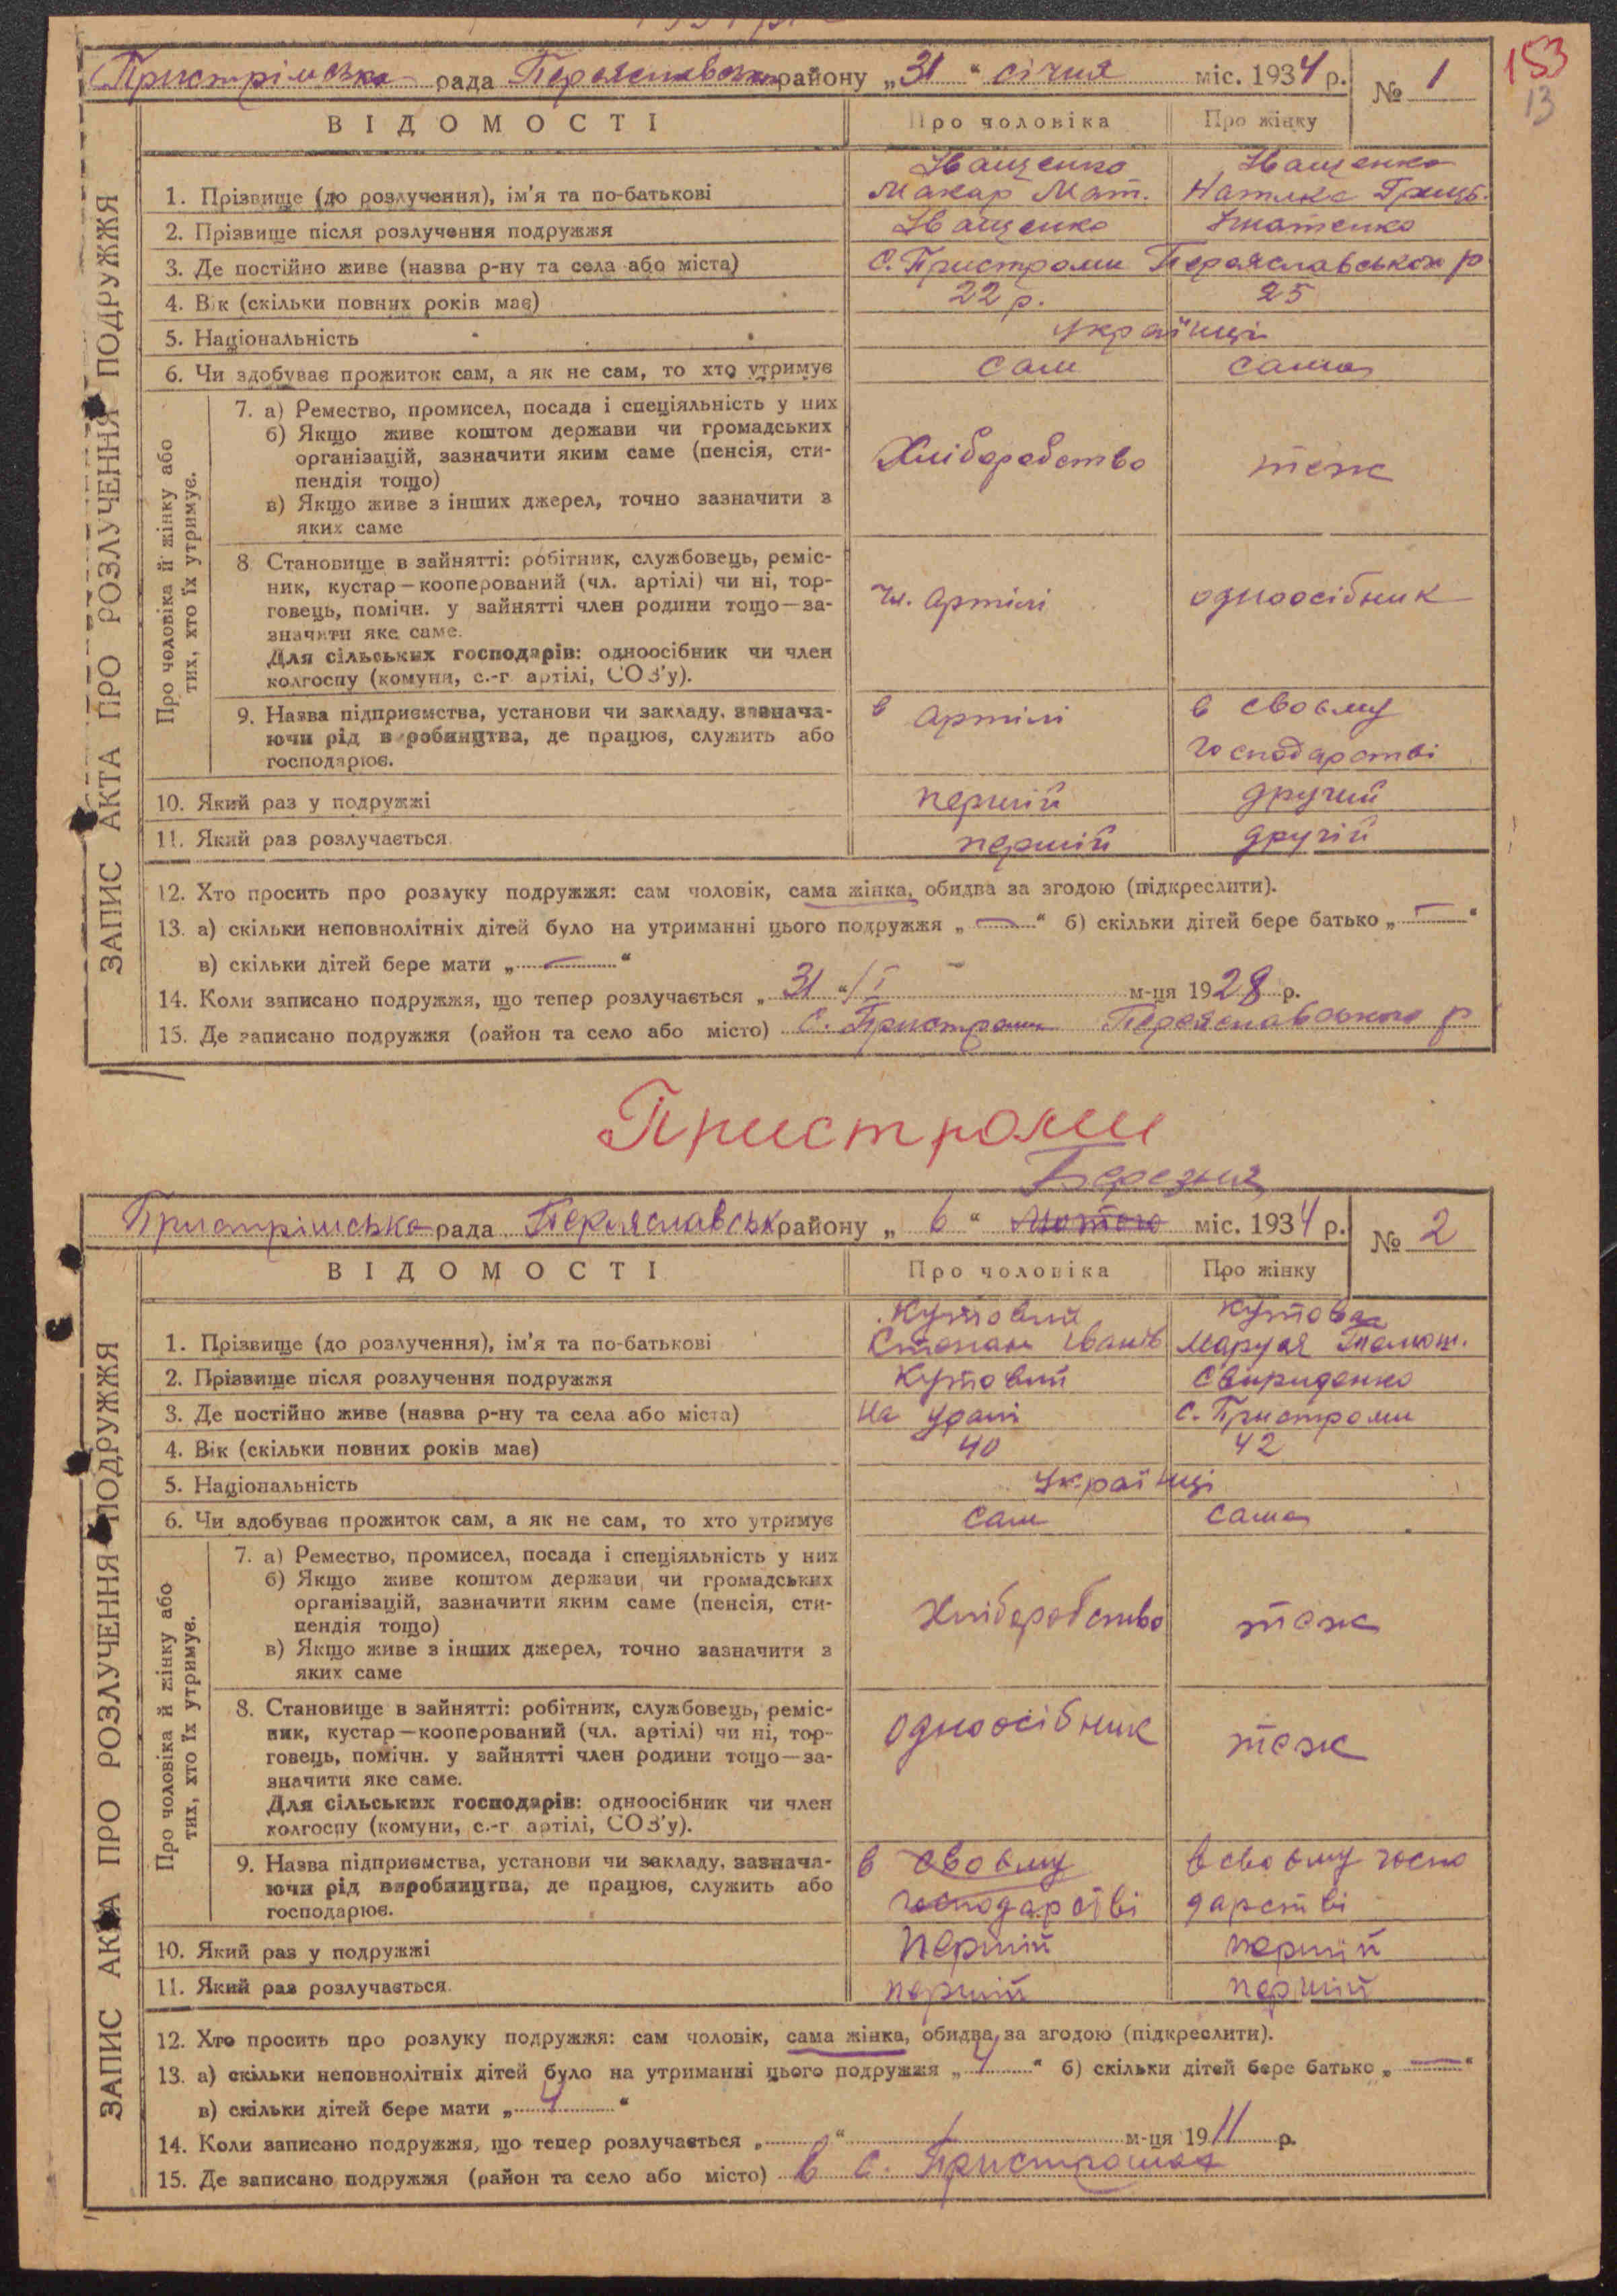 Пристрімська рада Переяславськ району „31“ січня міс. 1934 р. № 1
153
13
ЗАПИС АКТА ПРО РОЗЛУЧЕННЯ ПОДРУЖЖЯ
ВІДОМОСТІ Про чоловіка Про жінку
Іващенко Іващенко
1. Прізвище (до розлучення), ім'я та по-батькові Макар Мат. Наталка Гриць.
2. Прізвище після розлучення подружжя Іващенко Ігнатенко
3. Де постійно живе (назва р-ну та села або міста) С. Пристроми Переяславського р
4. Вік (скільки повних років має) 22 р. 25
5. Національність українці
6. Чи здобуває прожиток сам, а як не сам, то хто утримує сам сама
Про чоловіка й жінку або тих, хто їх утримує.
7. а) Ремество, промисел, посада і спеціяльність у них
б) Якщо живе коштом держави чи громадських
організацій, зазначити яким саме (пенсія, сти-
пендія тощо) Хліборобство теж
в) Якщо живе з інших джерел, точно зазначити з
яких саме
8. Становище в зайнятті: робітник, службовець, реміс-
ник, кустар—кооперований (чл. артілі) чи ні, тор-
говець, помічн. у зайнятті член родини тощо—за- чл. артілі одноосібник
значити яке саме.
Для сільських господарів: одноосібник чи член
колгоспу (комуни, с.-г. артілі, СОЗ'у).
9. Назва підприємства, установи чи закладу, зазнача- в артілі в своему
ючи рід виробництва, де працює, служить або
господарює. господарстві
10. Який раз у подружжі перший другий
11. Який раз розлучається перший другій
12. Хто просить про розлуку подружжя: сам чоловік, сама жінка, обидва за згодою (підкреслити).
13. а) скільки неповнолітніх дітей було на утриманні цього подружжя „—“ б) скільки дітей бере батько „—“
в) скільки дітей бере мати „—“
14. Коли записано подружжя, що тепер розлучається „31“/I м-ця 1928 р.
15. Де записано подружжя (район та село або місто) С. Пристроми Переяславського р
Пристроми
Березня
Пристрімська рада Переяславськ району „6“ лютого міс. 1934 р. № 2
ЗАПИС АКТА ПРО РОЗЛУЧЕННЯ ПОДРУЖЖЯ
ВІДОМОСТІ Про чоловіка Про жінку
Кутовий Кутова
1. Прізвище (до розлучення), ім'я та по-батькові Степан Іванів Маруся
2. Прізвище після розлучення подружжя Кутовий Свириденко
3. Де постійно живе (назва р-ну та села або міста) На Уралі С. Пристроми
4. Вік (скільки повних років має) 40 42
5. Національність Українці
6. Чи здобуває прожиток сам, а як не сам, то хто утримує сам сама
Про чоловіка й жінку або тих, хто їх утримує.
7. а) Ремество, промисел, посада і спеціяльність у них
б) Якщо живе коштом держави чи громадських
організацій, зазначити яким саме (пенсія, сти-
пендія тощо) хліборобство теж
в) Якщо живе з інших джерел, точно зазначити з
яких саме
8. Становище в зайнятті: робітник, службовець, реміс-
ник, кустар—кооперований (чл. артілі) чи ні, тор- одноосібник
говець, помічн. у зайнятті член родини тощо—за- теж
значити яке саме.
Для сільських господарів: одноосібник чи член
колгоспу (комуни, с.-г. артілі, СОЗ'у).
9. Назва підприємства, установи чи закладу, зазнача- в своему в своему госпо
ючи рід виробництва, де працює, служить або господарстві дарстві
господарює.
10. Який раз у подружжі перший перший
11. Який раз розлучається перший перший
12. Хто просить про розлуку подружжя: сам чоловік, сама жінка, обидва за згодою (підкреслити).
13. а) скільки неповнолітніх дітей було на утриманні цього подружжя „4“ б) скільки дітей бере батько „—“
в) скільки дітей бере мати „4“
14. Коли записано подружжя, що тепер розлучається „ “ м-ця 1911 р.
15. Де записано подружжя (район та село або місто) в с. Пристромах